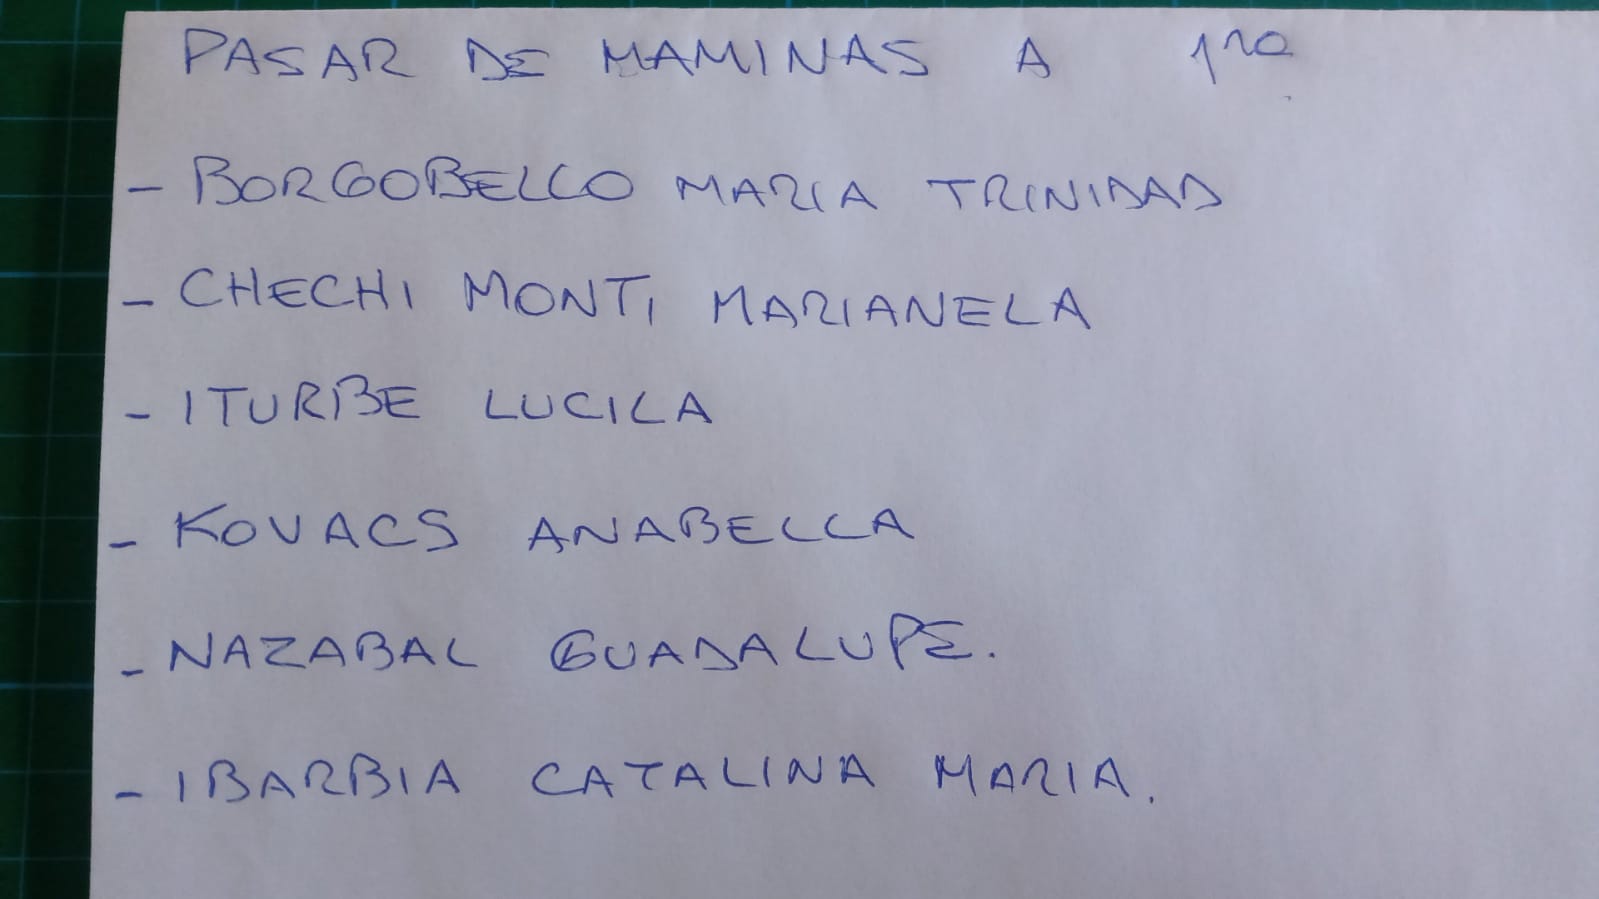 PASAR DE MAMINAS A 1ra
- BORGOBELLO MARIA TRINIDAD
- CHECHI MONTI MARIANELA
- ITURBE LUCILA
- KOVACS ANABELLA
- NAZABAL GUADALUPE.
- IBARBIA CATALINA MARIA.